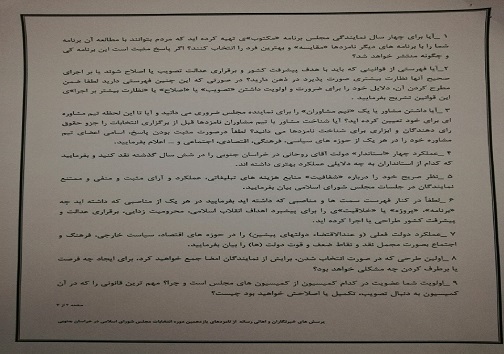 ۱ _آیا برای چهار سال نمایندگی مجلس برنامه «مکتوب»ی تهیه کرده اید که مردم بتوانند با مطالعه آن برنامه
شما را با برنامه های دیگر نامزدها «مقایسه» و بهترین فرد را انتخاب کنند؟ اگر پاسخ مثبت است این برنامه کی
و چگونه منتشر خواهد شد؟
۲_آیا فهرستی از قوانینی که باید با هدف پیشرفت کشور و برقراری عدالت تصویب یا اصلاح شوند یا بر اجرای
صحیح آنها نظارت بیشتری صورت پذیرد در ذهن دارید؟ در صورتی که این چنین فهرستی دارید لطفا ضمن
مطرح کردن آن، دلایل خود را برای ضرورت و اولویت داشتن «تصویب» یا «اصلاح» یا «نظارت بیشتر بر اجرا»ی
این قوانین تشریح بفرمایید .
۳ _آیا داشتن مشاور یا یک «تیم مشاوران» را برای نماینده مجلس ضروری می دانید و آیا تا این لحظه تیم مشاوره
ای برای خود تعیین کرده اید؟ آیا شناخت مشاور یا تیم مشاوران نامزدها قبل از برگزاری انتخابات را جزو حقوق
رای دهندگان و ابزاری برای شناخت نامزدها می دانید؟ لطفاً درصورت مثبت بودن پاسخ، اسامی اعضای تیم
مشاوره خود را در هر یک از حوزه های سیاسی، فرهنگی، اقتصادی، اجتماعی و ... اعلام بفرمایید.
۴ _عملکرد چهار «استاندار» دولت آقای روحانی در خراسان جنوبی را در شش سال گذشته نقد کنید و بفرمایید
که کدام از استانداران به چه دلایلی عملکرد بهتری داشته اند.
۵ _ نظر صریح خود را درباره «شفافیت» منابع هزینه های تبلیغاتی، عملکرد و آرای مثبت و منفی و ممتنع
نمایندگان در جلسات مجلس شورای اسلامی بیان بفرمایید.
۶ _ لطفاً در کنار فهرست سمت ها و مناصبی که داشته اید بفرمایید در هر یک از مناصبی که داشته اید چه
«برنامه»، «پروژه» یا «خلاقیت»ی را برای پیشبرد اهداف انقلاب اسلامی، محرومیت زدایی، برقراری عدالت و
پیشرفت کشور طراحی یا اجرا کرده اید.
۷ _ عملکرد دولت فعلی (و عنداالاقتضاء دولتهای پیشین) را در حوزه های اقتصاد، سیاست خارجی، فرهنگ و
اجتماع بصورت مجمل نقد و نقاط ضعف و قوت دولت (ها) را بیان بفرمایید.
۸ _اولین طرحی که در صورت انتخاب شدن، برایش از نمایندگان امضا جمع خواهید کرد، برای ایجاد چه فرصت
یا برطرف کردن چه مشکلی خواهد بود؟
۹ _اولویت شما عضویت در کدام کمیسیون از کمیسیون های مجلس است و چرا؟ مهم ترین قانونی را که در آن
کمیسیون به دنبال تصویب، تکمیل یا اصلاحش خواهید بود چیست؟
صفحه ۲ از ۲
پرسش های خبرنگاران و اهالی رسانه از نامزدهای یازدهمین دوره انتخابات مجلس شورای اسلامی در خراسان جنوبی